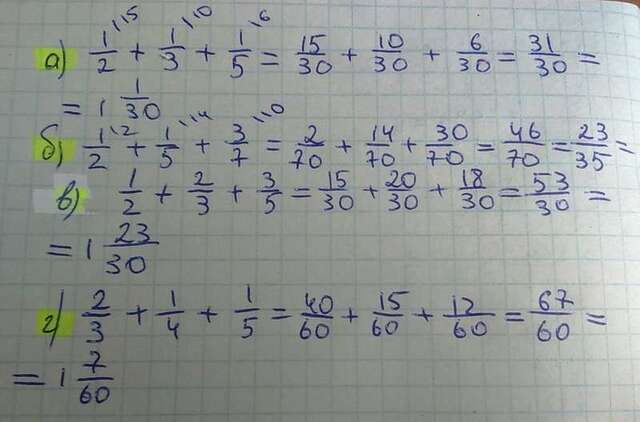 а) 1/2 \15 + 1/3 \10 + 1/5 \6 = 15/30 + 10/30 + 6/30 = 31/30 =
= 1 1/30
б) 1/2 \2 + 1/5 \14 + 3/7 \10 = 2/70 + 14/70 + 30/70 = 46/70 = 23/35 =
в) 1/2 + 2/3 + 3/5 = 15/30 + 20/30 + 18/30 = 53/30 =
= 1 23/30
г) 2/3 + 1/4 + 1/5 = 40/60 + 15/60 + 12/60 = 67/60 =
= 1 7/60